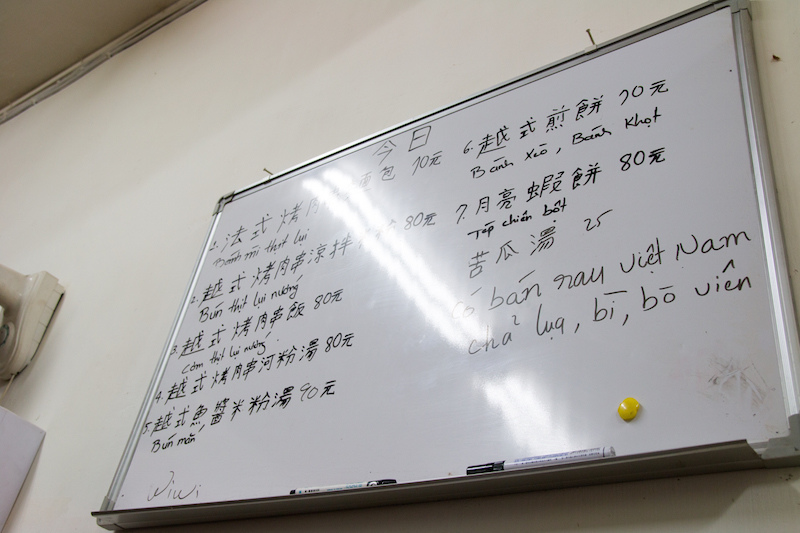 今日
1. 法式烤肉 麵包 70元
Bánh mì thịt lụi
2. 越式烤肉串涼拌 80元
Bún thịt lụi nướng
3. 越式烤肉串飯 80元
Cơm thịt lụi nướng
4. 越式烤肉串河粉湯 80元
5. 越式魚醬米粉湯 90元
Bún mắn
6. 越式煎餅 70元
Bánh xèo, Bánh khọt
7. 月亮蝦餅 80元
Tép chiên bột
苦瓜湯 25
Có bán rau việt Nam
chả lụa, bì, bò viên
Wiwi